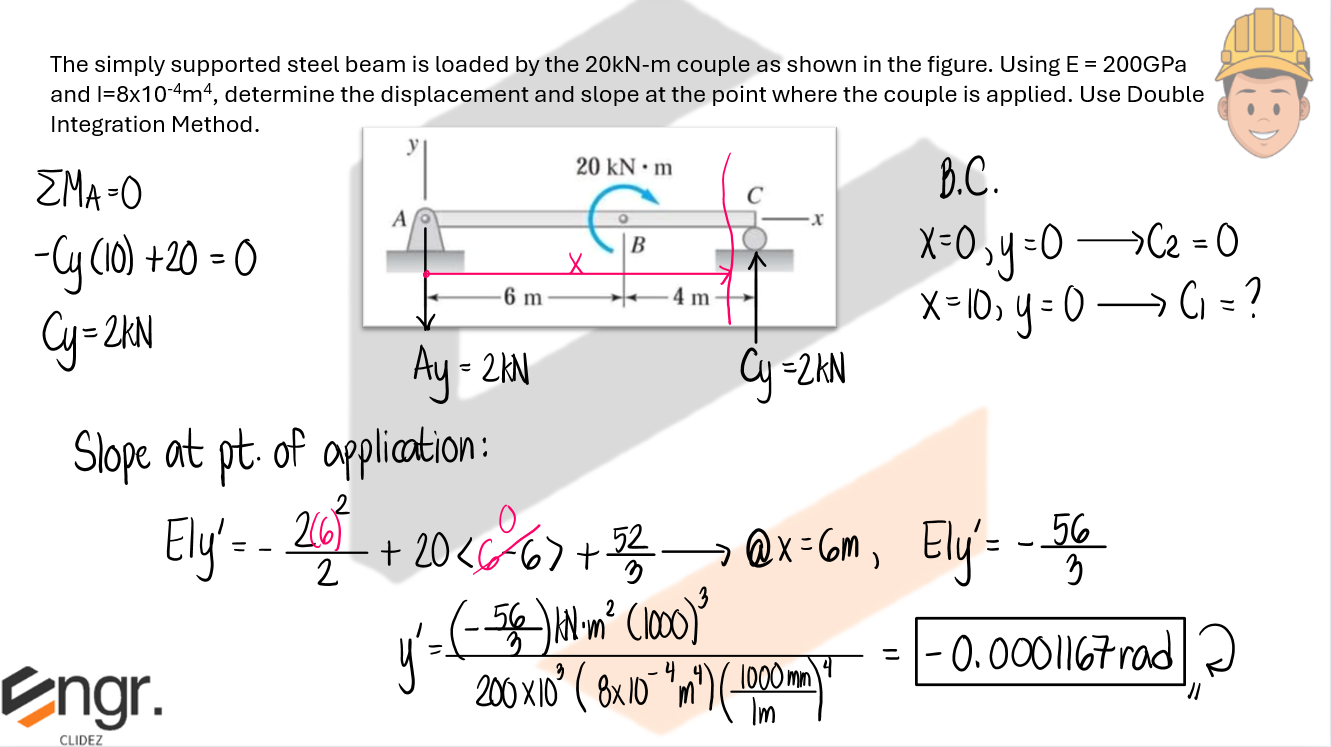 The simply supported steel beam is loaded by the 20kN-m couple as shown in the figure. Using E = 200GPa
and I=8x10⁻⁴m⁴, determine the displacement and slope at the point where the couple is applied. Use Double
Integration Method.
ΣM_A=0
-Cy(10) +20 = 0
Cy=2kN
y
20 kN · m
A
C
x
B
X
6 m
4 m
Ay = 2kN
Cy =2kN
B.C.
X=0, y=0 → C2 = 0
X=10, y=0 → C1 = ?
Slope at pt. of application:
EIy' = - 2(6)²/2 + 20<6-6> + 52/3 → @x=6m, EIy' = - 56/3
0
y' = (-56/3)kN·m² (1000)³ / 200x10³ (8x10⁻⁴m⁴)(1000mm/1m)⁴ = -0.0001167rad
Engr.
CLIDEZ